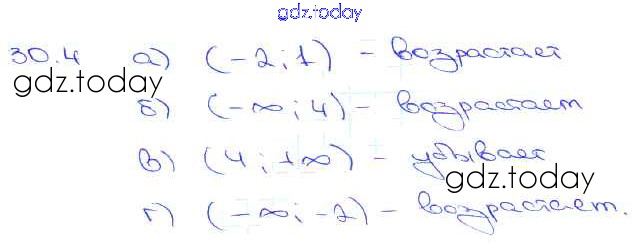 gdz.today
30.4 а) (-2; 1) - возрастает
gdz.today
б) (-∞; 4) - возрастает
в) (4; +∞) - убывает
gdz.today
г) (-∞; -2) - возрастает.